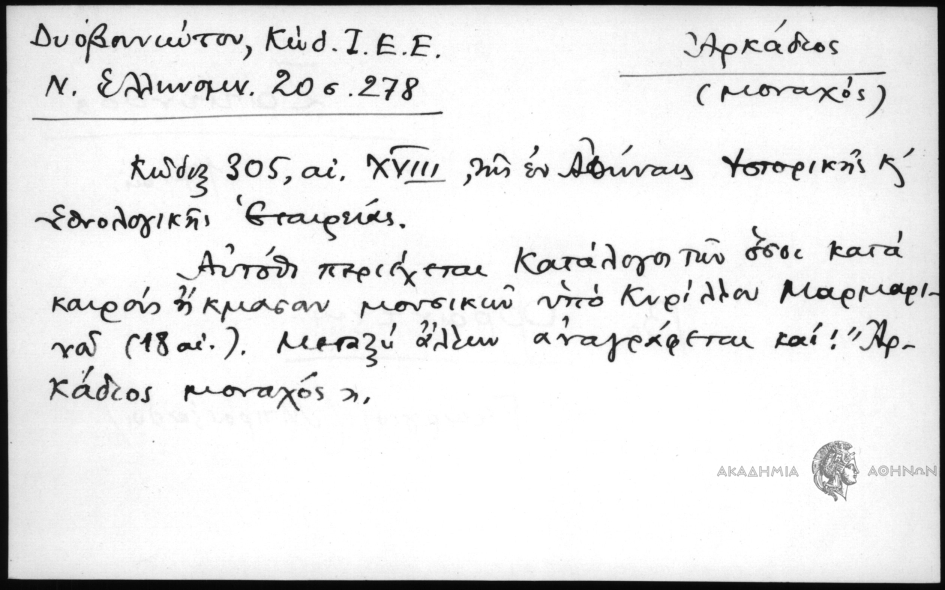 Δυοβουνιώτου, Κώδ. Ι.Ε.Ε.
Ν. Ἑλληνομν. 20 σ. 278
Ἀρκάδιος
(μοναχός)
Κῶδιξ 305, αἰ. XVIII, τῆς ἐν Ἀθήναις Ἱστορικῆς κ'
Ἐθνολογικῆς Ἑταιρείας.
Αὐτόθι περιέχεται Κατάλογος τῶν ὅσοι κατά
καιρούς ἤκμασαν μουσικῶν ὑπό Κυρίλλου Μαρμαρι-
νοῦ (18 αἰ.). Μεταξύ ἄλλων ἀναγράφεται καί: "Ἀρ-
κάδιος μοναχός".
ΑΚΑΔΗΜΙΑ ΑΘΗΝΩΝ